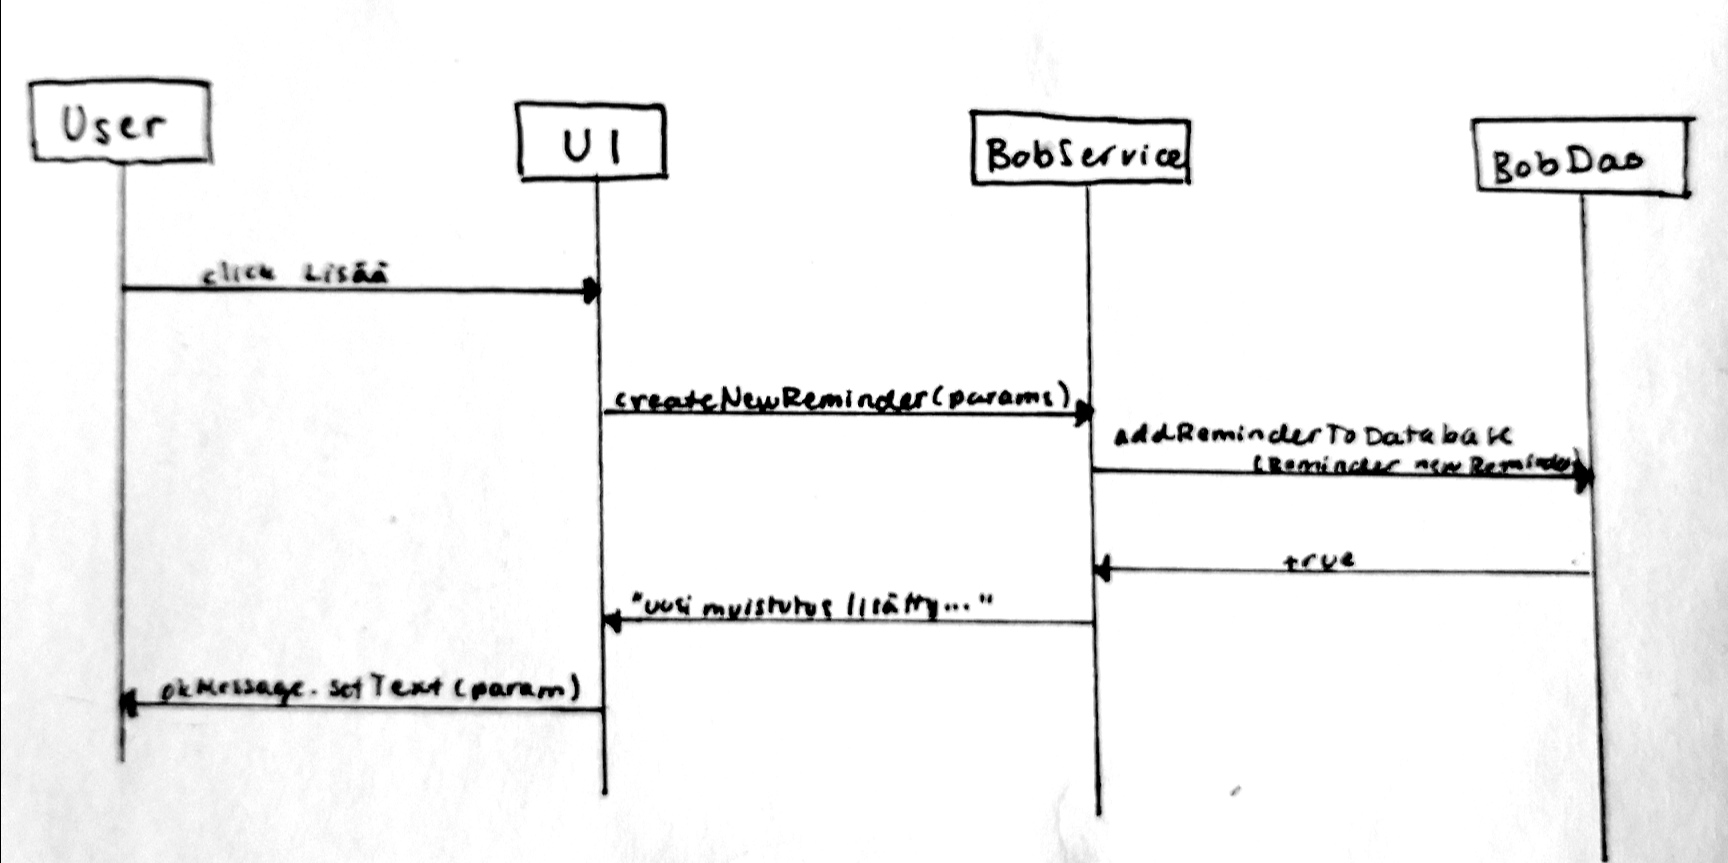 User
UI
BobService
BobDao
click Lisää
createNewReminder(params)
addReminderToDatabase
(Reminder newReminder)
true
"uusi muistutus lisätty..."
okMessage.setText(param)